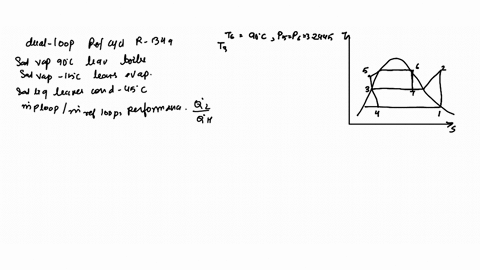 dual-loop Ref cycl R-134a
Sat vap 90°C leav boiler
Sat vap -15°C leavs evap.
Sat liq leaves cond - 45°C
ṁp loop / ṁ ref loop, performance. Q̇L / Q̇H
T6 = 90°C, P5=P6=3.2445
T3
T
5
6
2
3
7
4
1
S